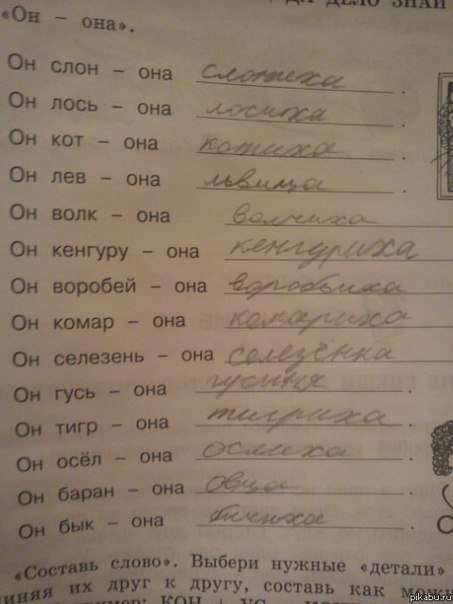 ДА ДЕЛО ЗНАЙ
«Он – она».
Он слон – она слониха.
Он лось – она лосиха.
Он кот – она котиха.
Он лев – она львица.
Он волк – она волчиха
Он кенгуру – она кенгуриха
Он воробей – она воробьиха
Он комар – она комариха
Он селезень – она селезёнка
Он гусь – она гусыня.
Он тигр – она тигриха.
Он осёл – она ослиха.
Он баран – она овца.
Он бык – она бычиха.
«Составь слово». Выбери нужные «детали»
их друг к другу, составь как
КОН +
pikabu.ru